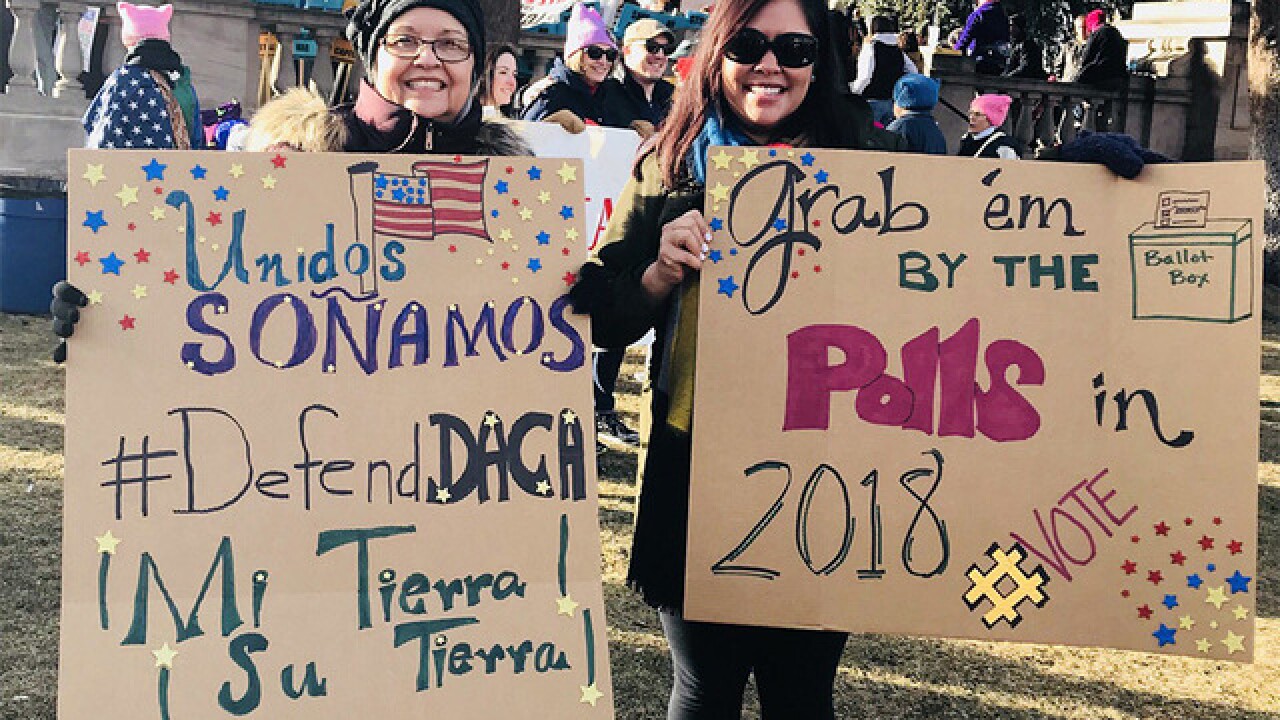 Unidos
SOÑAMOS
#DefendDACA
¡Mi Tierra!
¡Su Tierra!
Grab 'em
BY THE
Polls in
2018
#VOTE
Ballot
Box